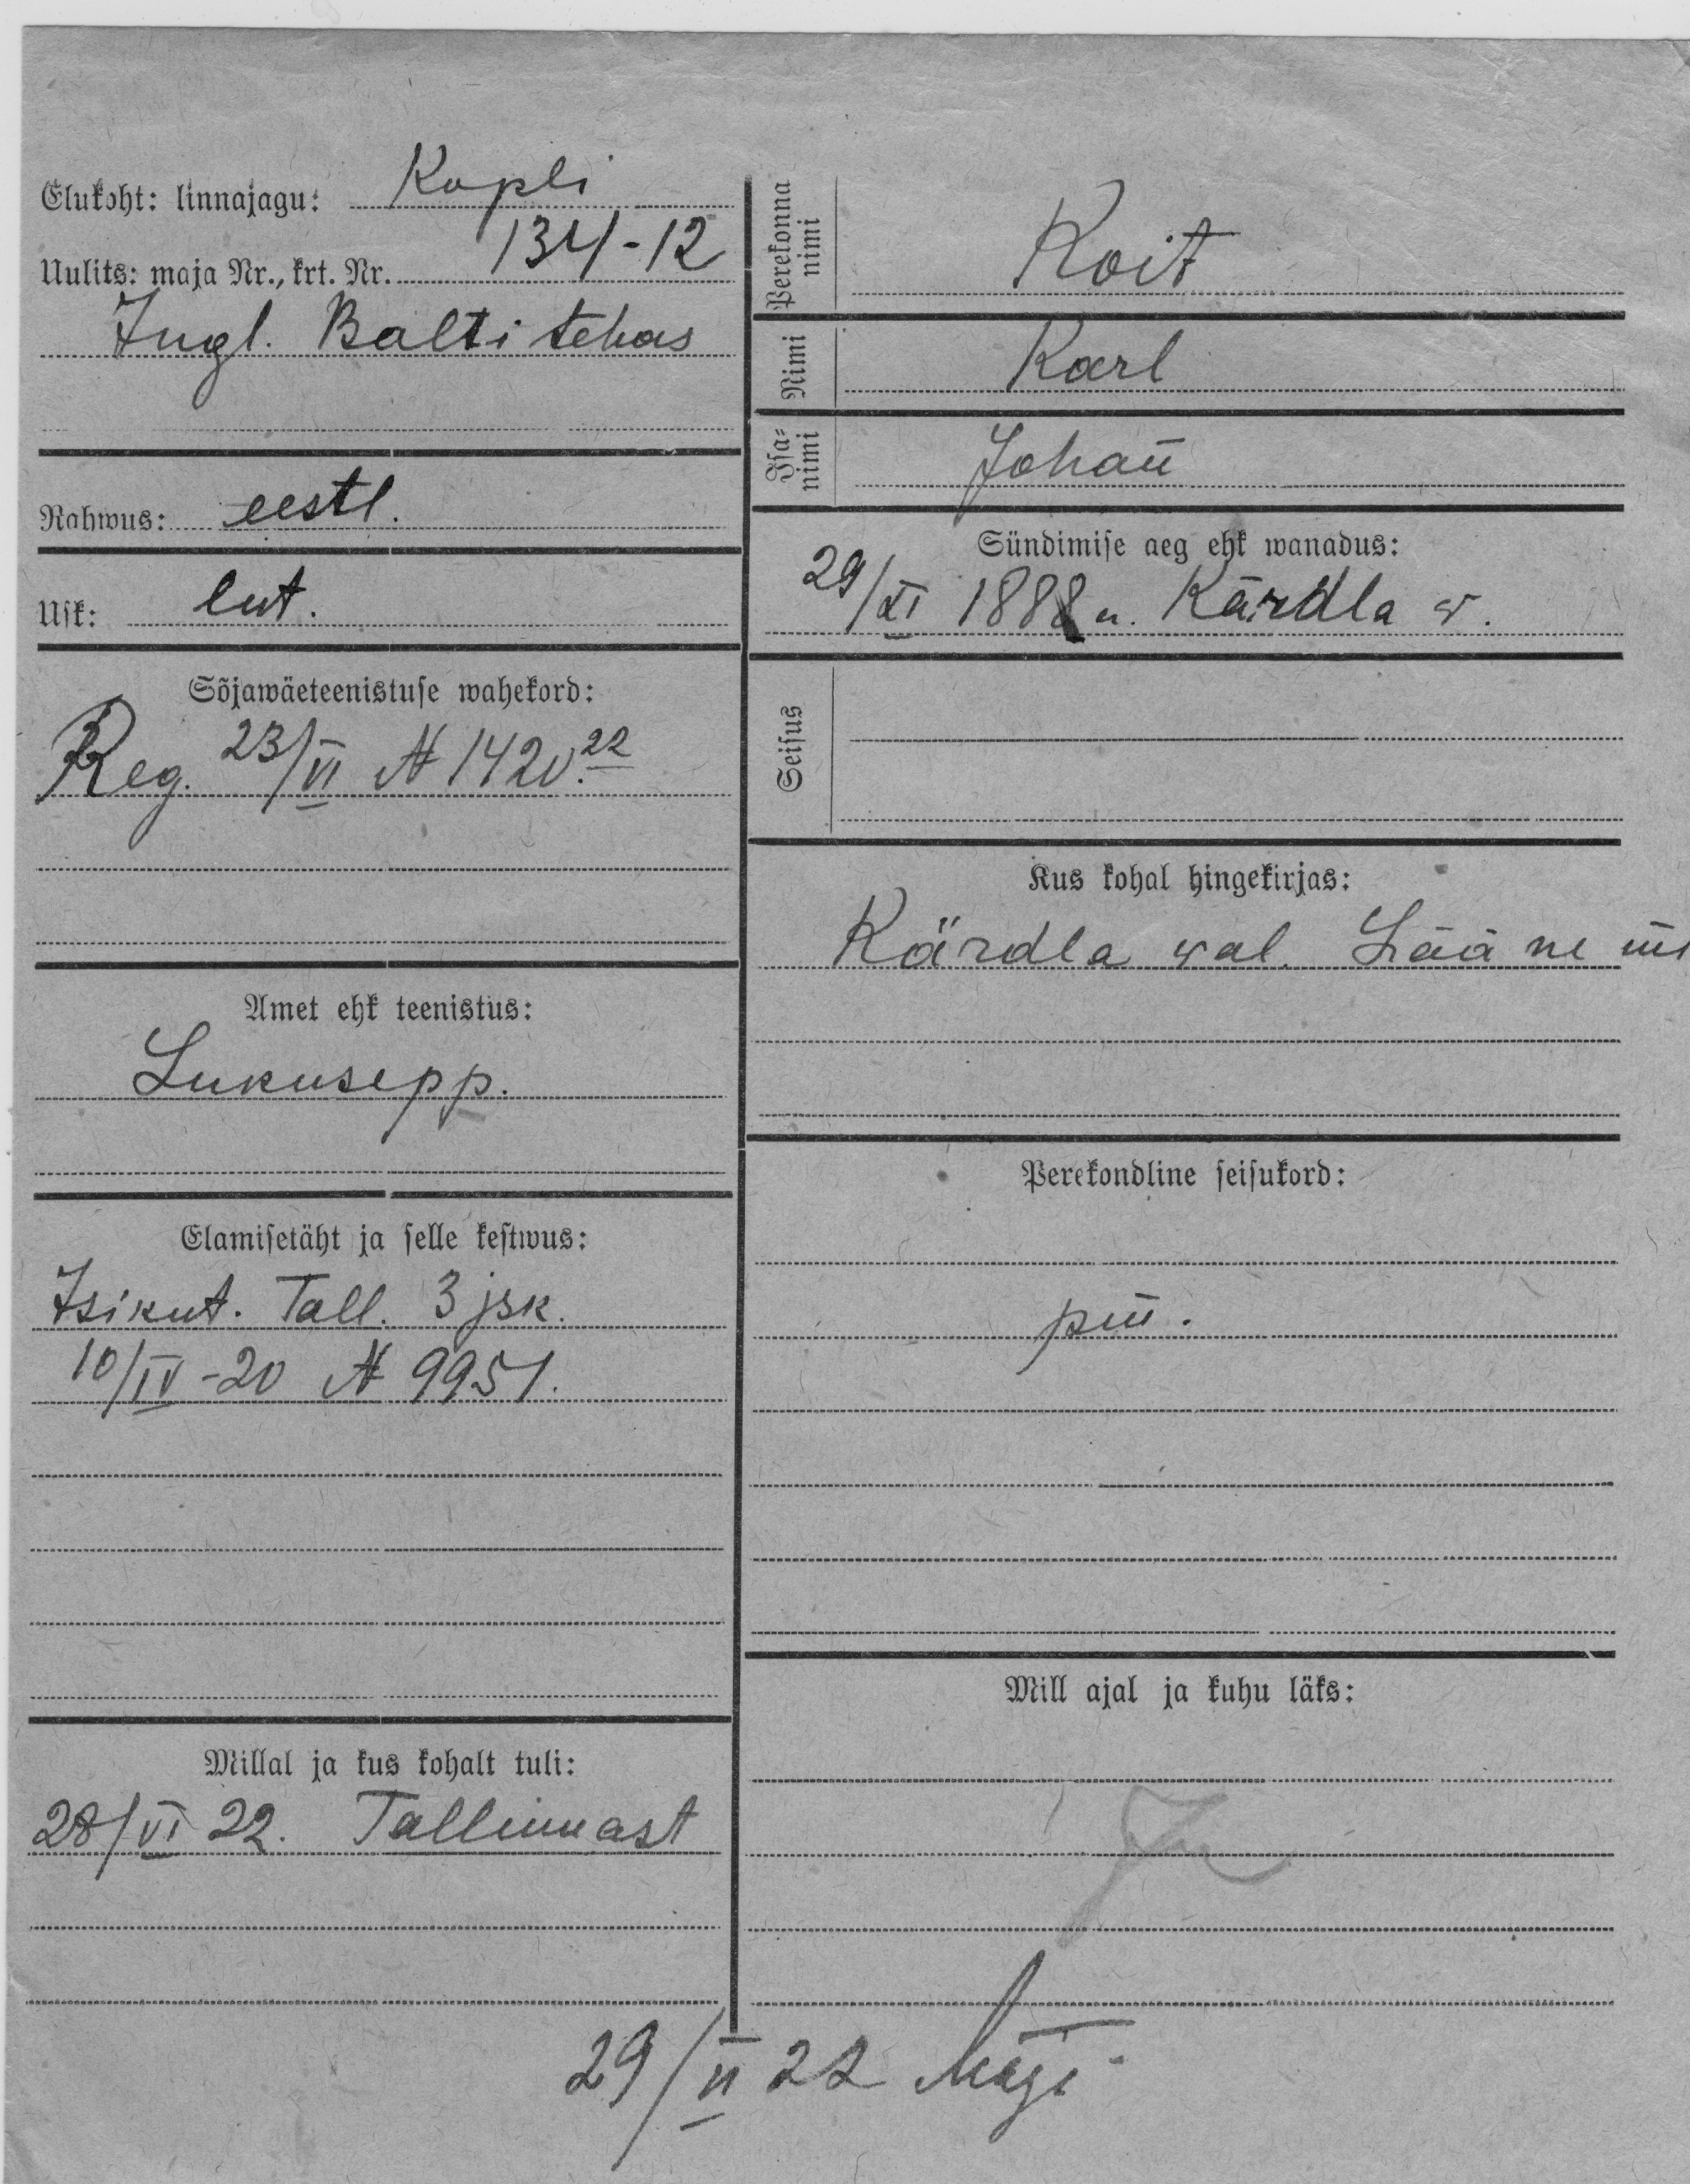 Elukoht: linnajagu: Kopli
Uulits: maja Nr., krt. Nr. 134-12
Ingl. Balti tehas
Rahwus: eestl.
Usk: lut.
Sõjawäeteenistuse wahekord:
Reg. 23/VI № 1420. 22
Amet ehk teenistus:
Lukusepp.
Elamisetäht ja selle kestwus:
Isikut. Tall. 3 jsk.
10/IV-20 № 9951.
Millal ja kus kohalt tuli:
28/VI 22. Tallinnast
Perekonna nimi Koit
Nimi Karl
Isa-nimi Johañ
Sündimise aeg ehk wanadus:
29/XI 1888 a. Kärdla w.
Seisus
Kus kohal hingekirjas:
Kärdla wal. Lääne
Perekondline seisukord:
Mill ajal ja kuhu läks:
29/VI 22 Mägi